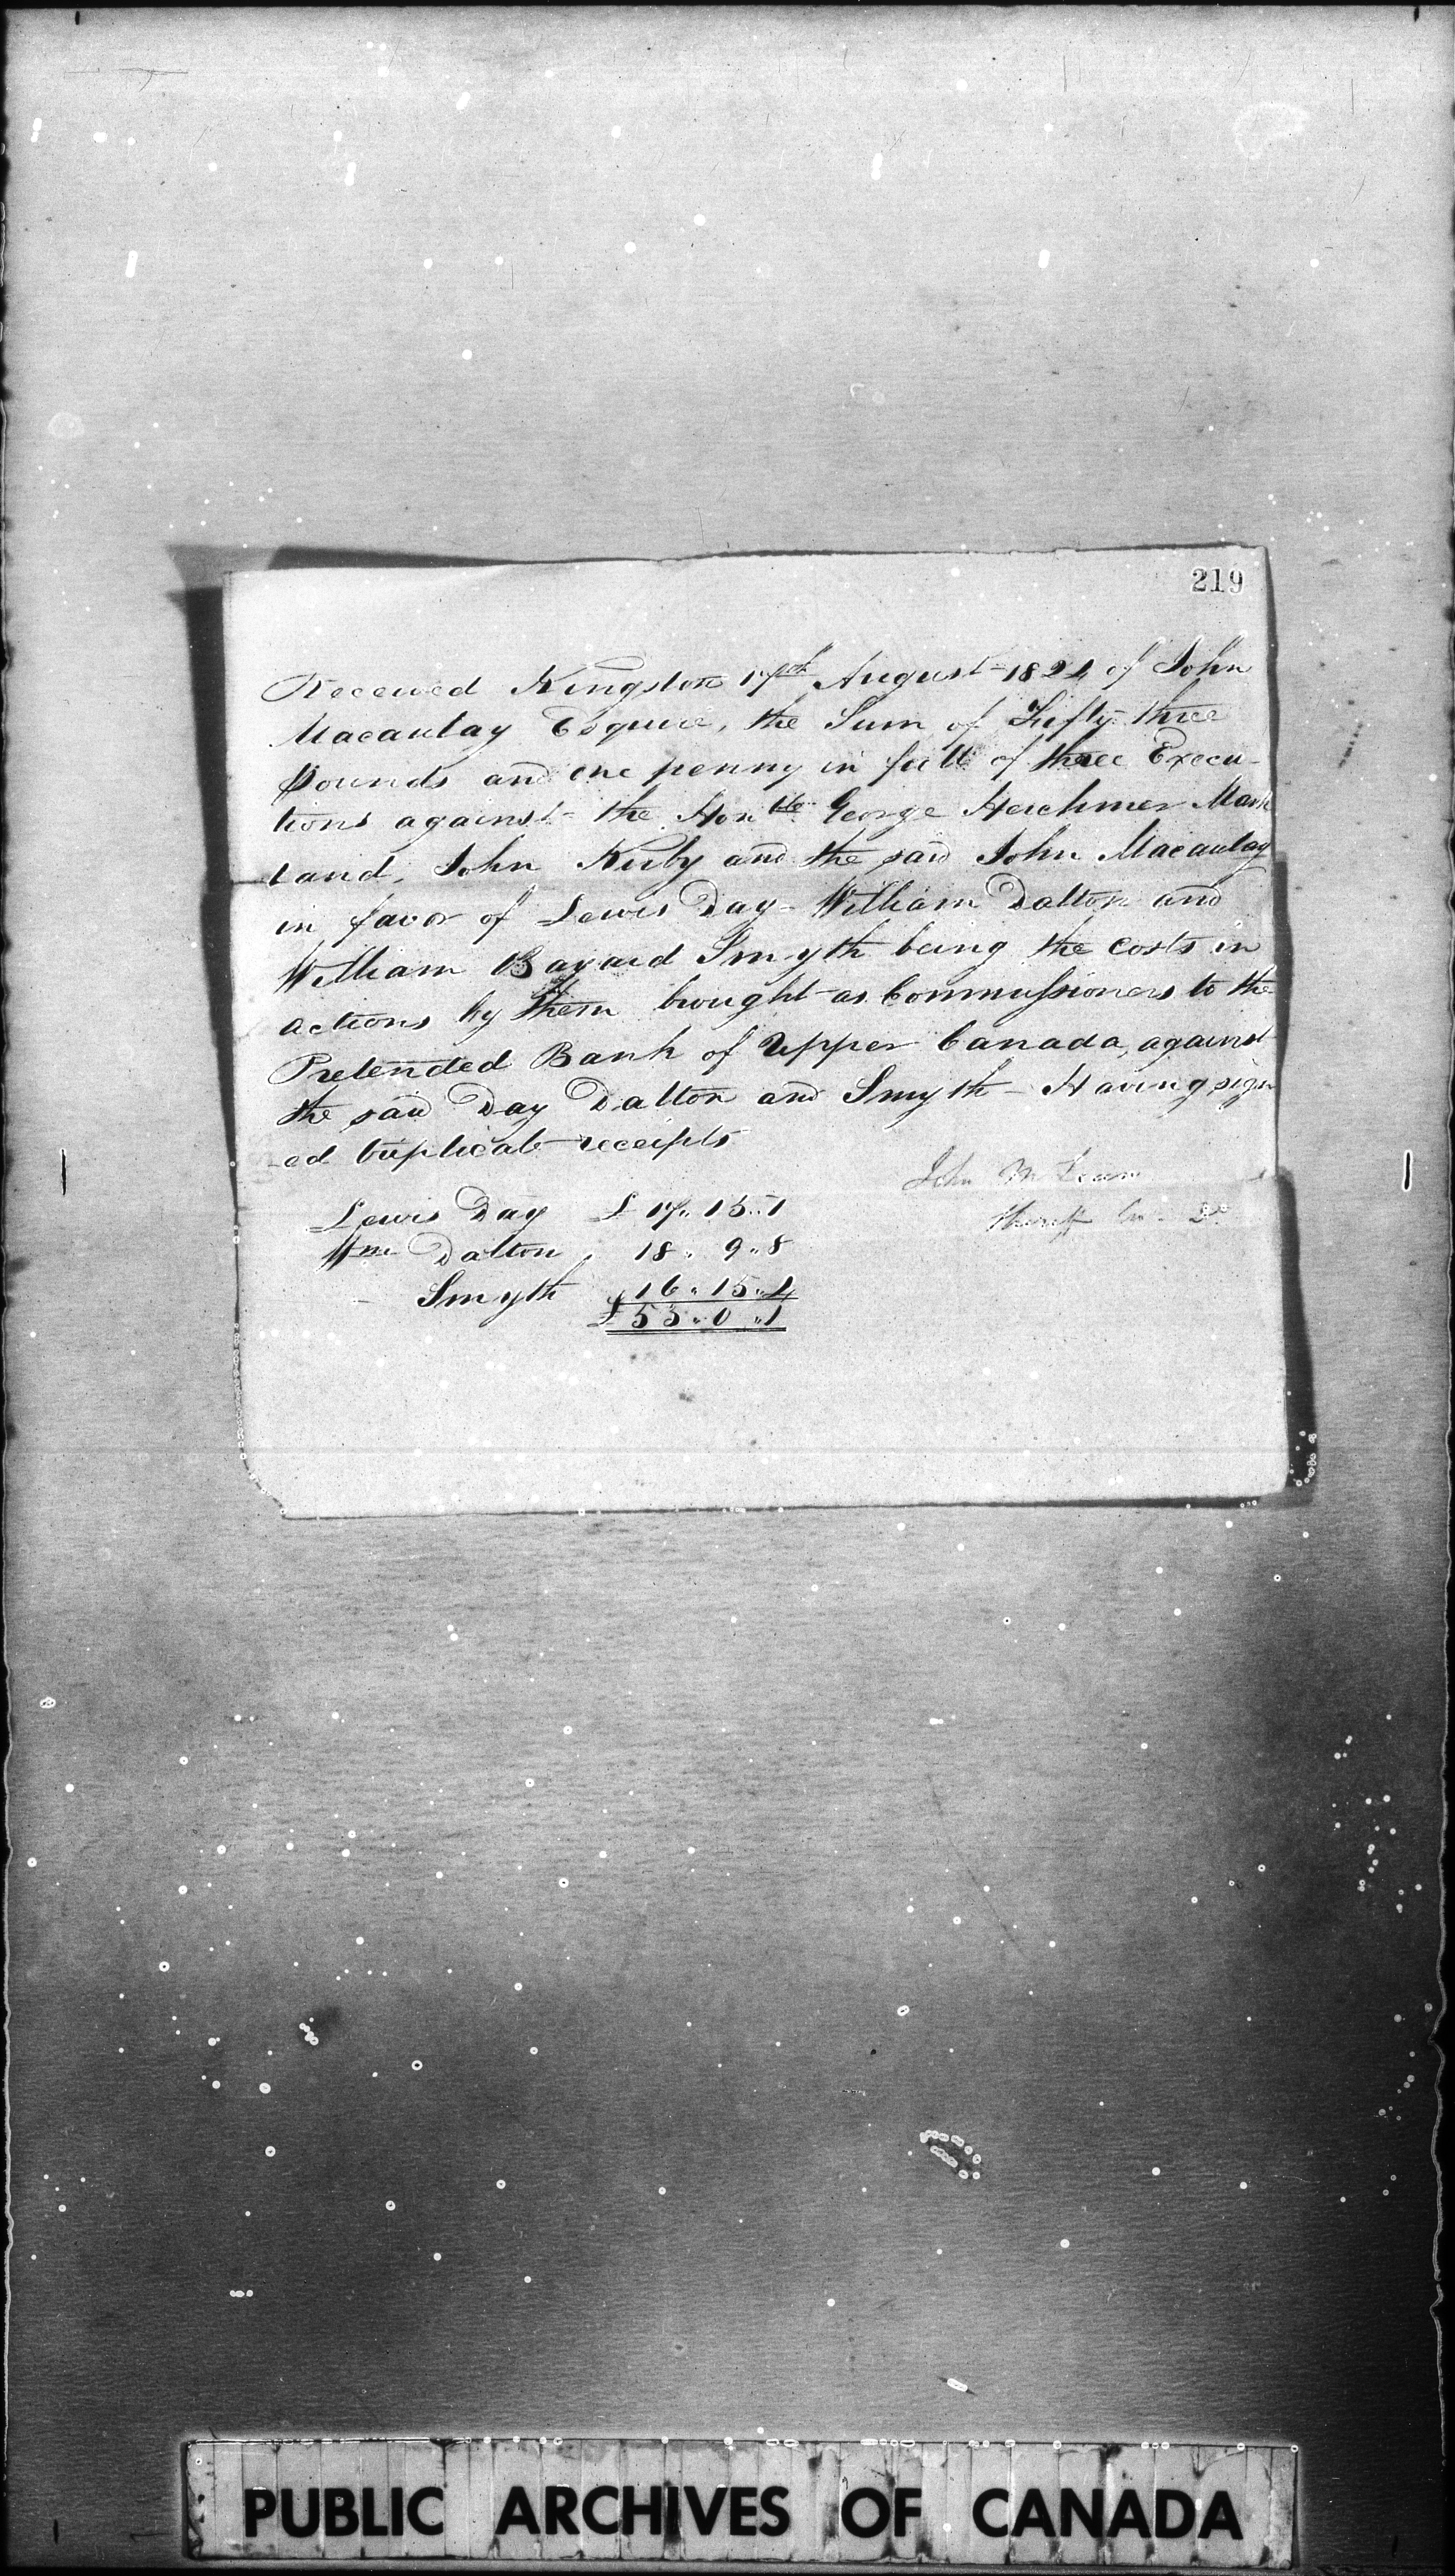 219
Received Kingston 17th August 1824 of John
Macaulay Esquire, the Sum of Fifty three
Pounds and one penny in full of three Execu-
tions against the Honble George Herchmer Mark
land, John Kirby and the said John Macaulay
in favor of Lewis Day - William Dalton and
William Bayard Smyth being the costs in
actions by them brought as Commissioners to the
Pretended Bank of Upper Canada, against
the said Day Dalton and Smyth - Having sign
-ed triplicate receipts
John McLean
Sheriff
Lewis Day £ 17 „ 15 „ 1
Wm Dalton „ 18 „ 9 „ 8
Smyth 16 „ 15 „ 4
£ 53 „ 0 „ 1
PUBLIC ARCHIVES OF CANADA